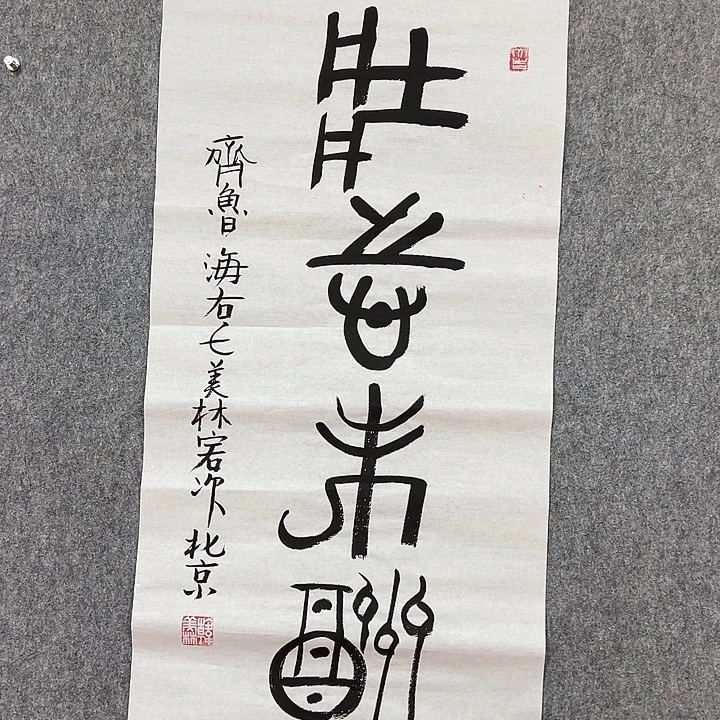 壯志未酬
齊魯海右美林客次北京